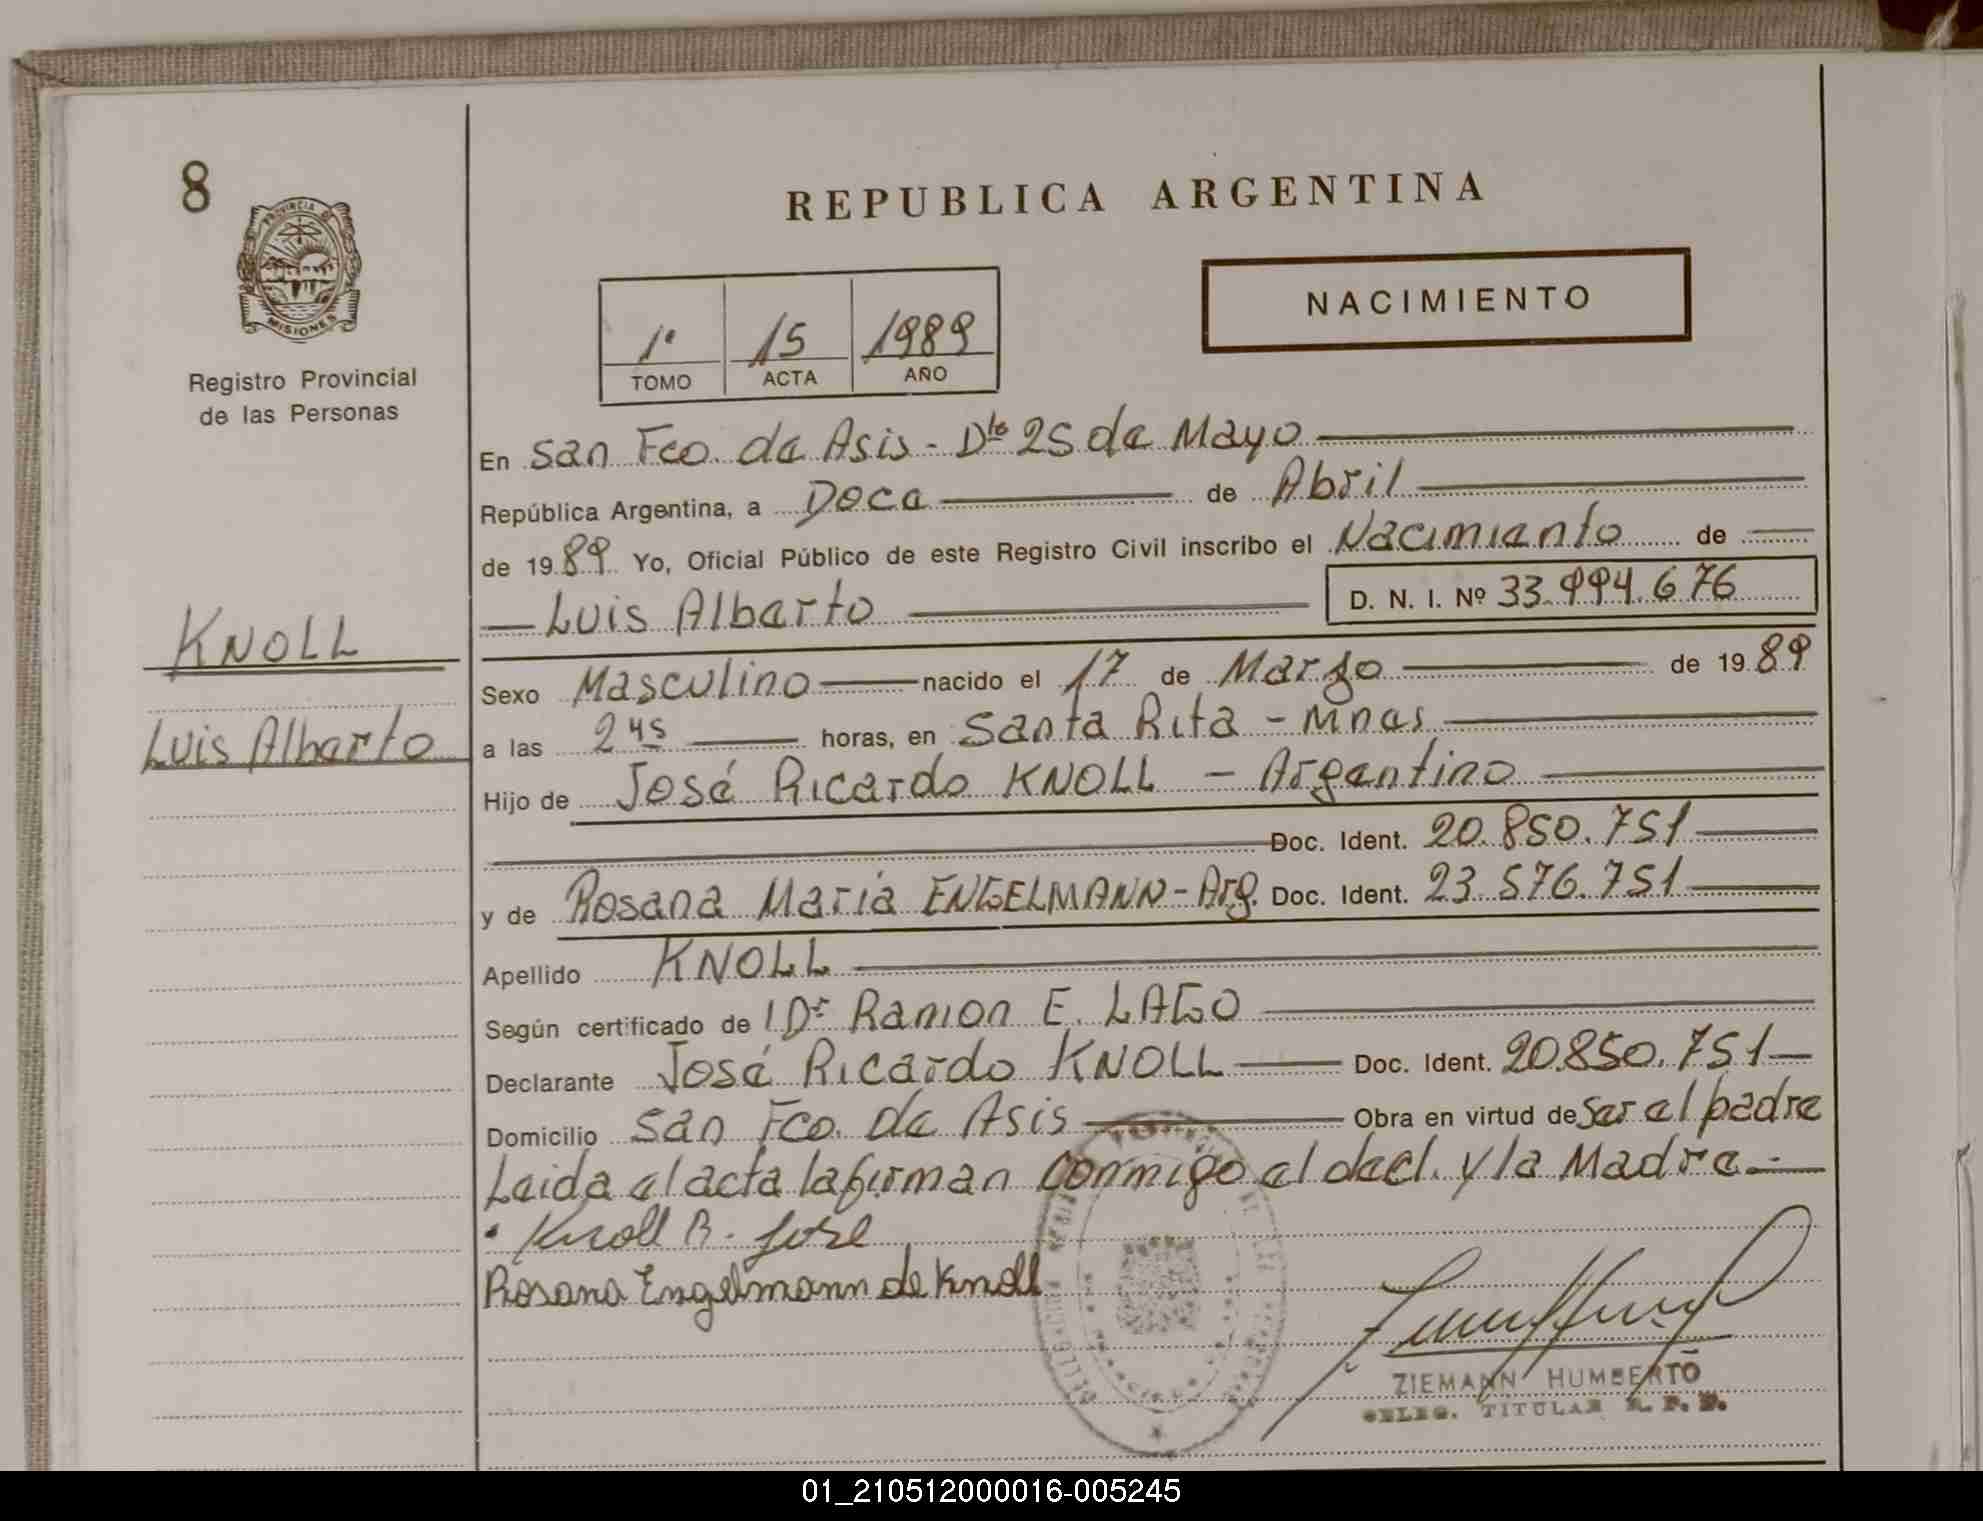 8
PROVINCIA DE
MISIONES
Registro Provincial
de las Personas
KNOLL
Luis Alberto
REPUBLICA ARGENTINA
NACIMIENTO
1º 15 1989
TOMO ACTA AÑO
En San Fco. de Asis - Dto 25 de Mayo
República Argentina, a Doce de Abril
de 1989 Yo, Oficial Público de este Registro Civil inscribo el Nacimiento de
Luis Alberto D. N. I. Nº 33.994.676
Sexo Masculino nacido el 17 de Marzo de 1989
a las 2 45 horas, en Santa Rita - Mnes
Hijo de José Ricardo KNOLL - Argentino
Doc. Ident. 20.850.751
y de Rosana Maria ENGELMANN - Arg. Doc. Ident. 23.576.751
Apellido KNOLL
Según certificado de Dr Ramon E. LAGO
Declarante José Ricardo KNOLL Doc. Ident. 20.850.751
Domicilio San Fco. de Asis Obra en virtud de ser el padre
Leida el acta la firman conmigo el decl. y la Madre.-
Knoll R. José
Rosana Engelmann de Knoll
ZIEMANN HUMBERTO
DELEG. TITULAR R. P. P.
01_210512000016-005245